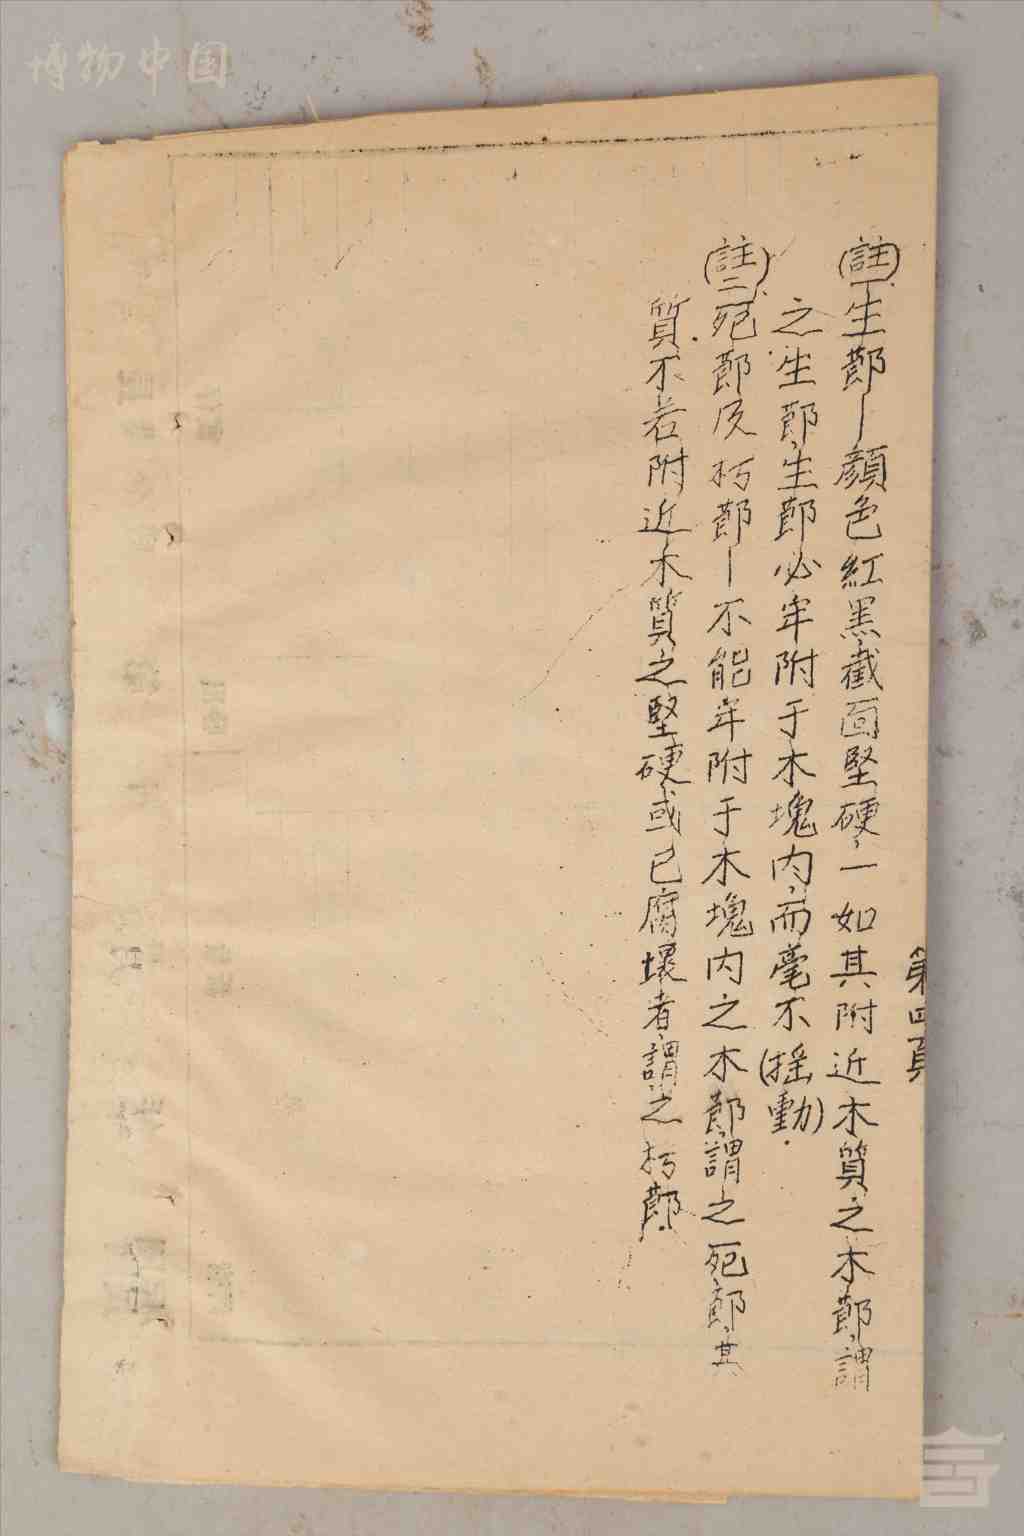 博物中国
第四頁
(註一)生節—顏色紅黑,截面堅硬,一如其附近木質之木節,謂
之生節,生節必牢附于木塊內,而毫不(搖動).
(註二)死節及朽節—不能牢附于木塊內之木節,謂之死節,其
質不若附近木質之堅硬或已腐壞者,謂之朽節.